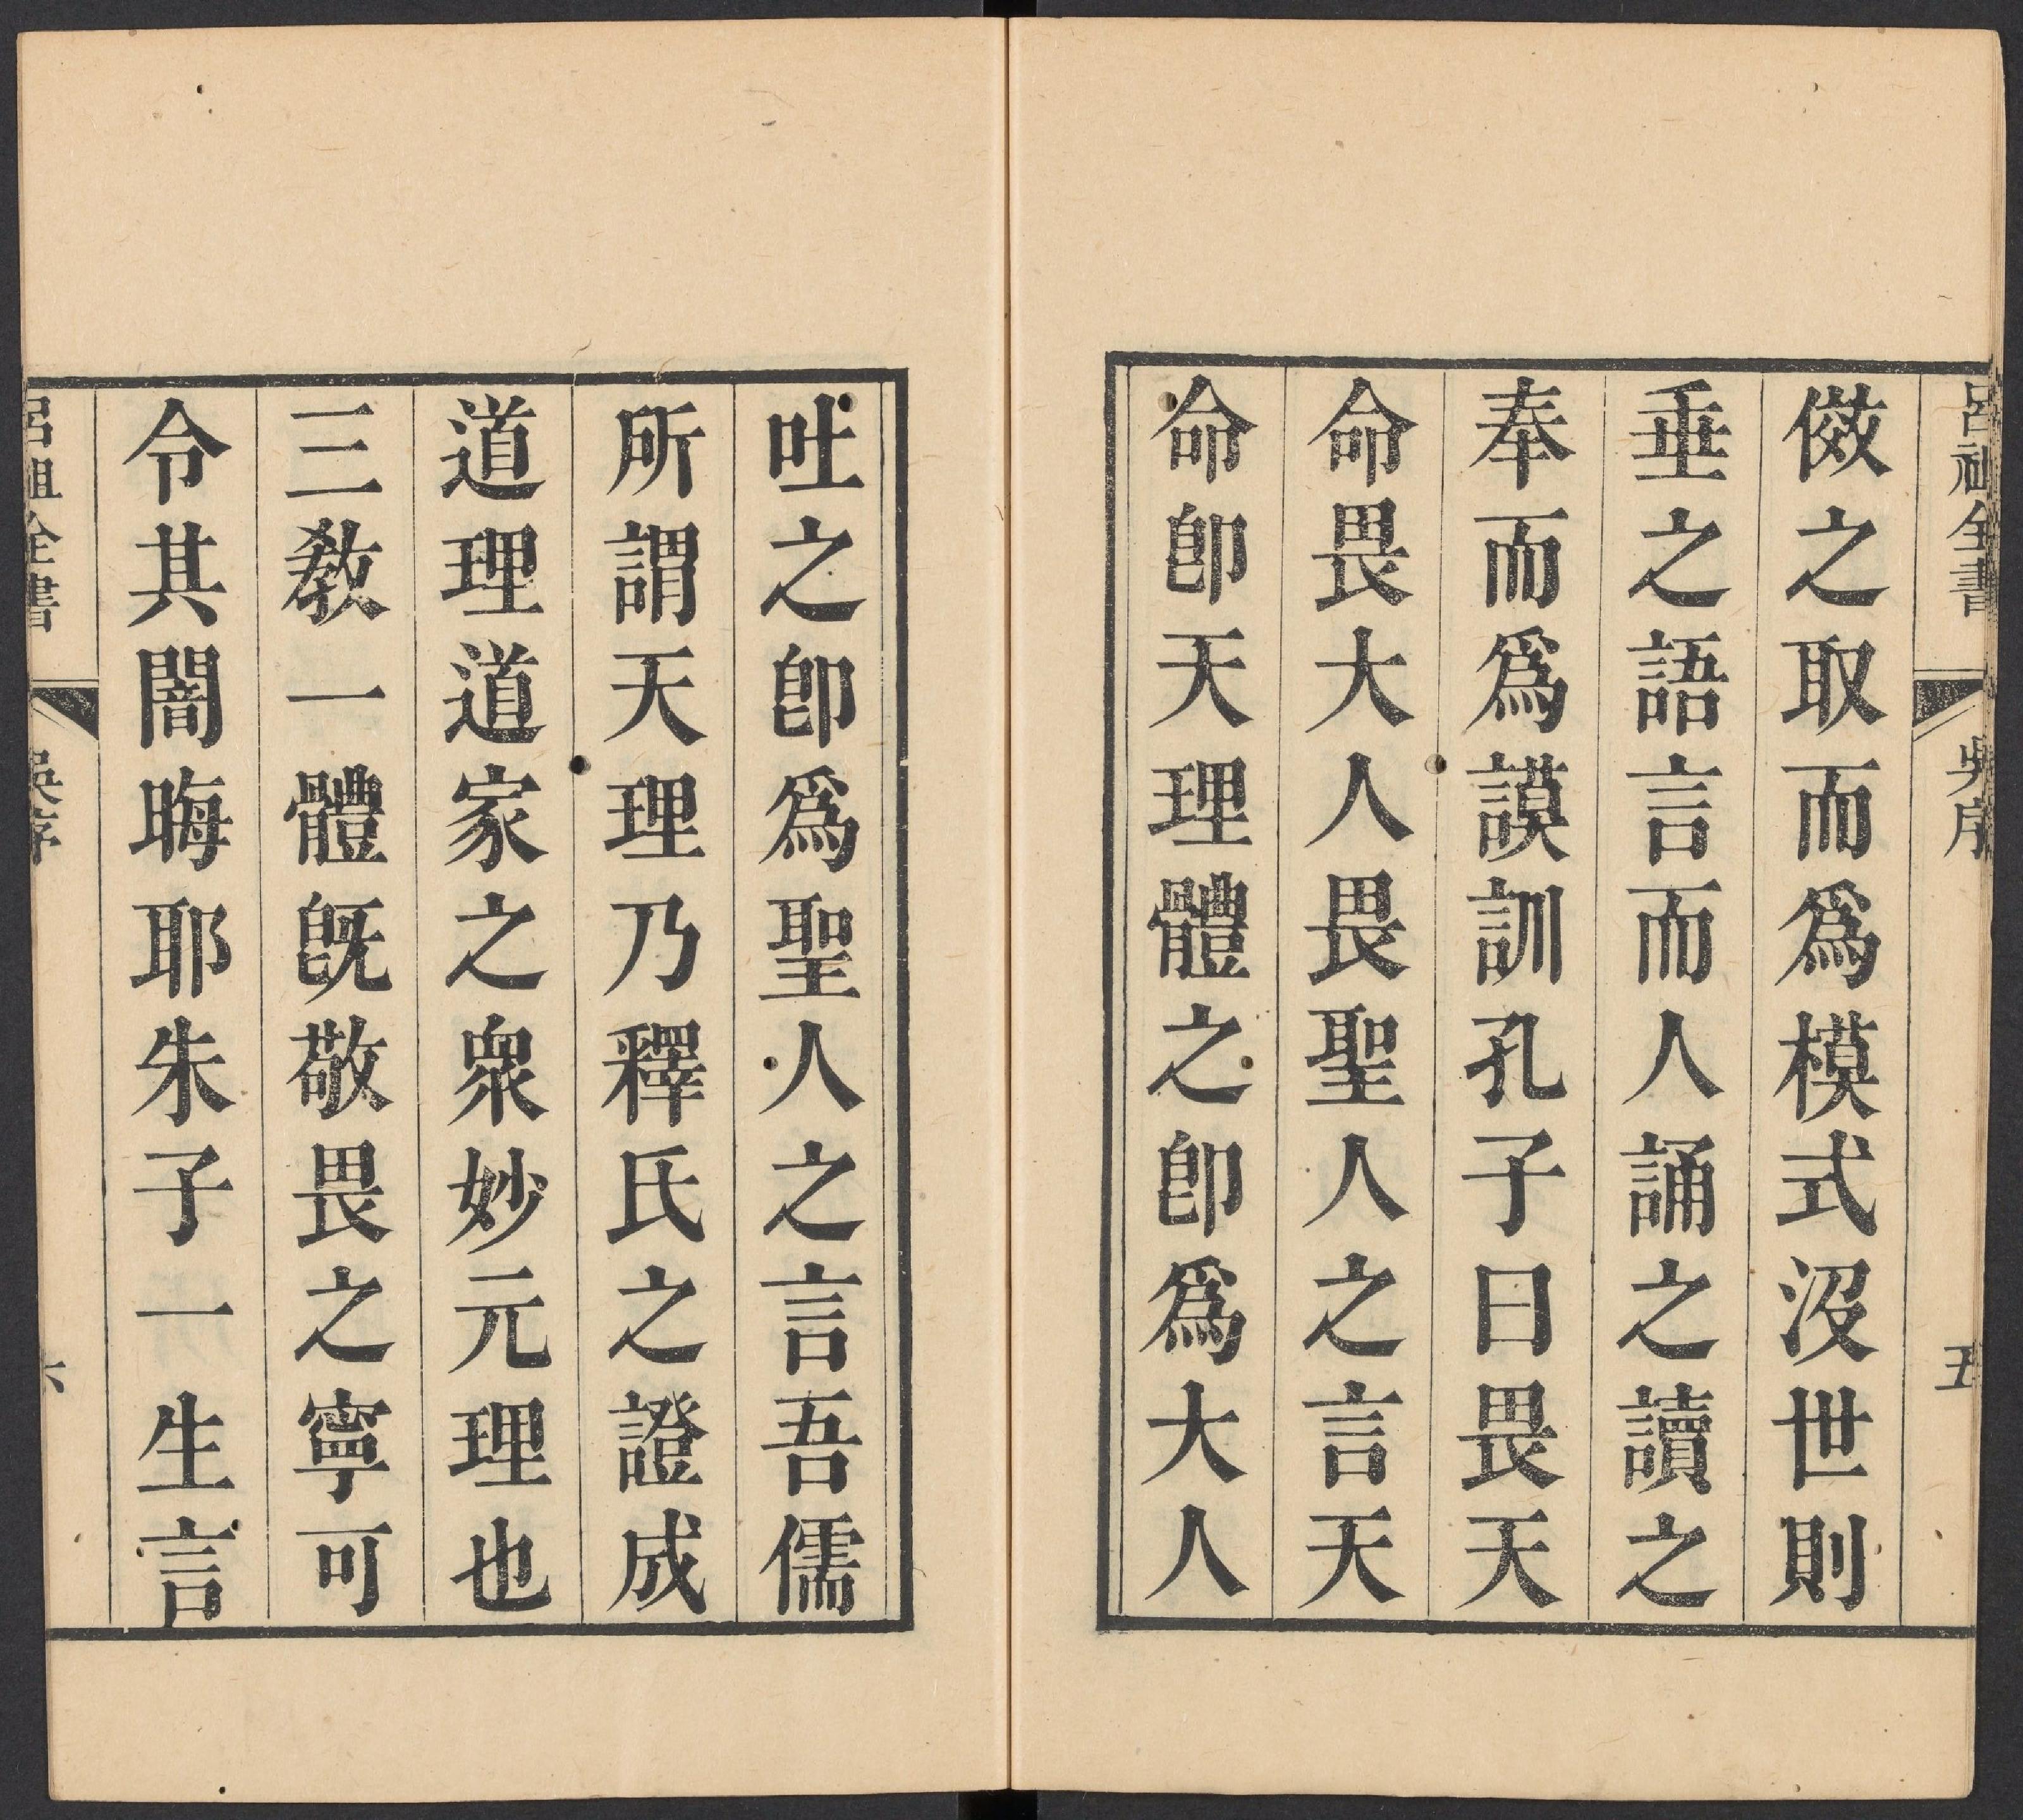 呂祖全書
吳序
五
傚之取而爲模式沒世則
垂之語言而人誦之讀之
奉而爲謨訓孔子曰畏天
命畏大人畏聖人之言天
命卽天理體之卽爲大人
吐之卽爲聖人之言吾儒
所謂天理乃釋氏之證成
道理道家之衆妙元理也
三敎一體旣敬畏之寧可
令其闇晦耶朱子一生言
呂祖全書
吳序
六